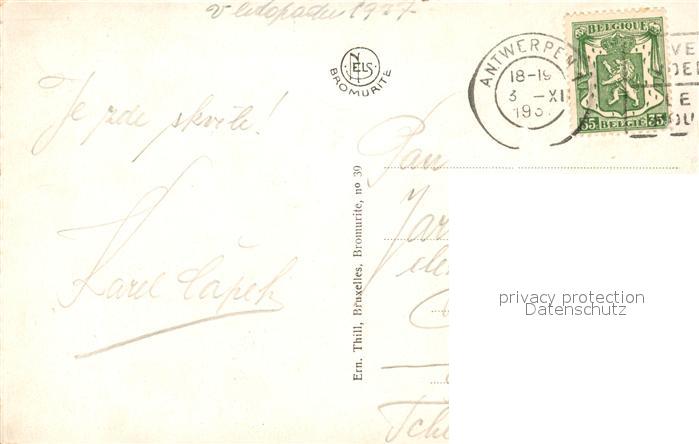 v listopadu 1937.
NELS
BROMURITE
ANTWERPEN
18-19
3 -XI
193
BELGIQUE
35 BELGIË 35
Je zde skvěle!
Karel Čapek
Pan
Jar
Tche
Ern. Thill, Bruxelles, Bromurite, nº 39
privacy protection
Datenschutz